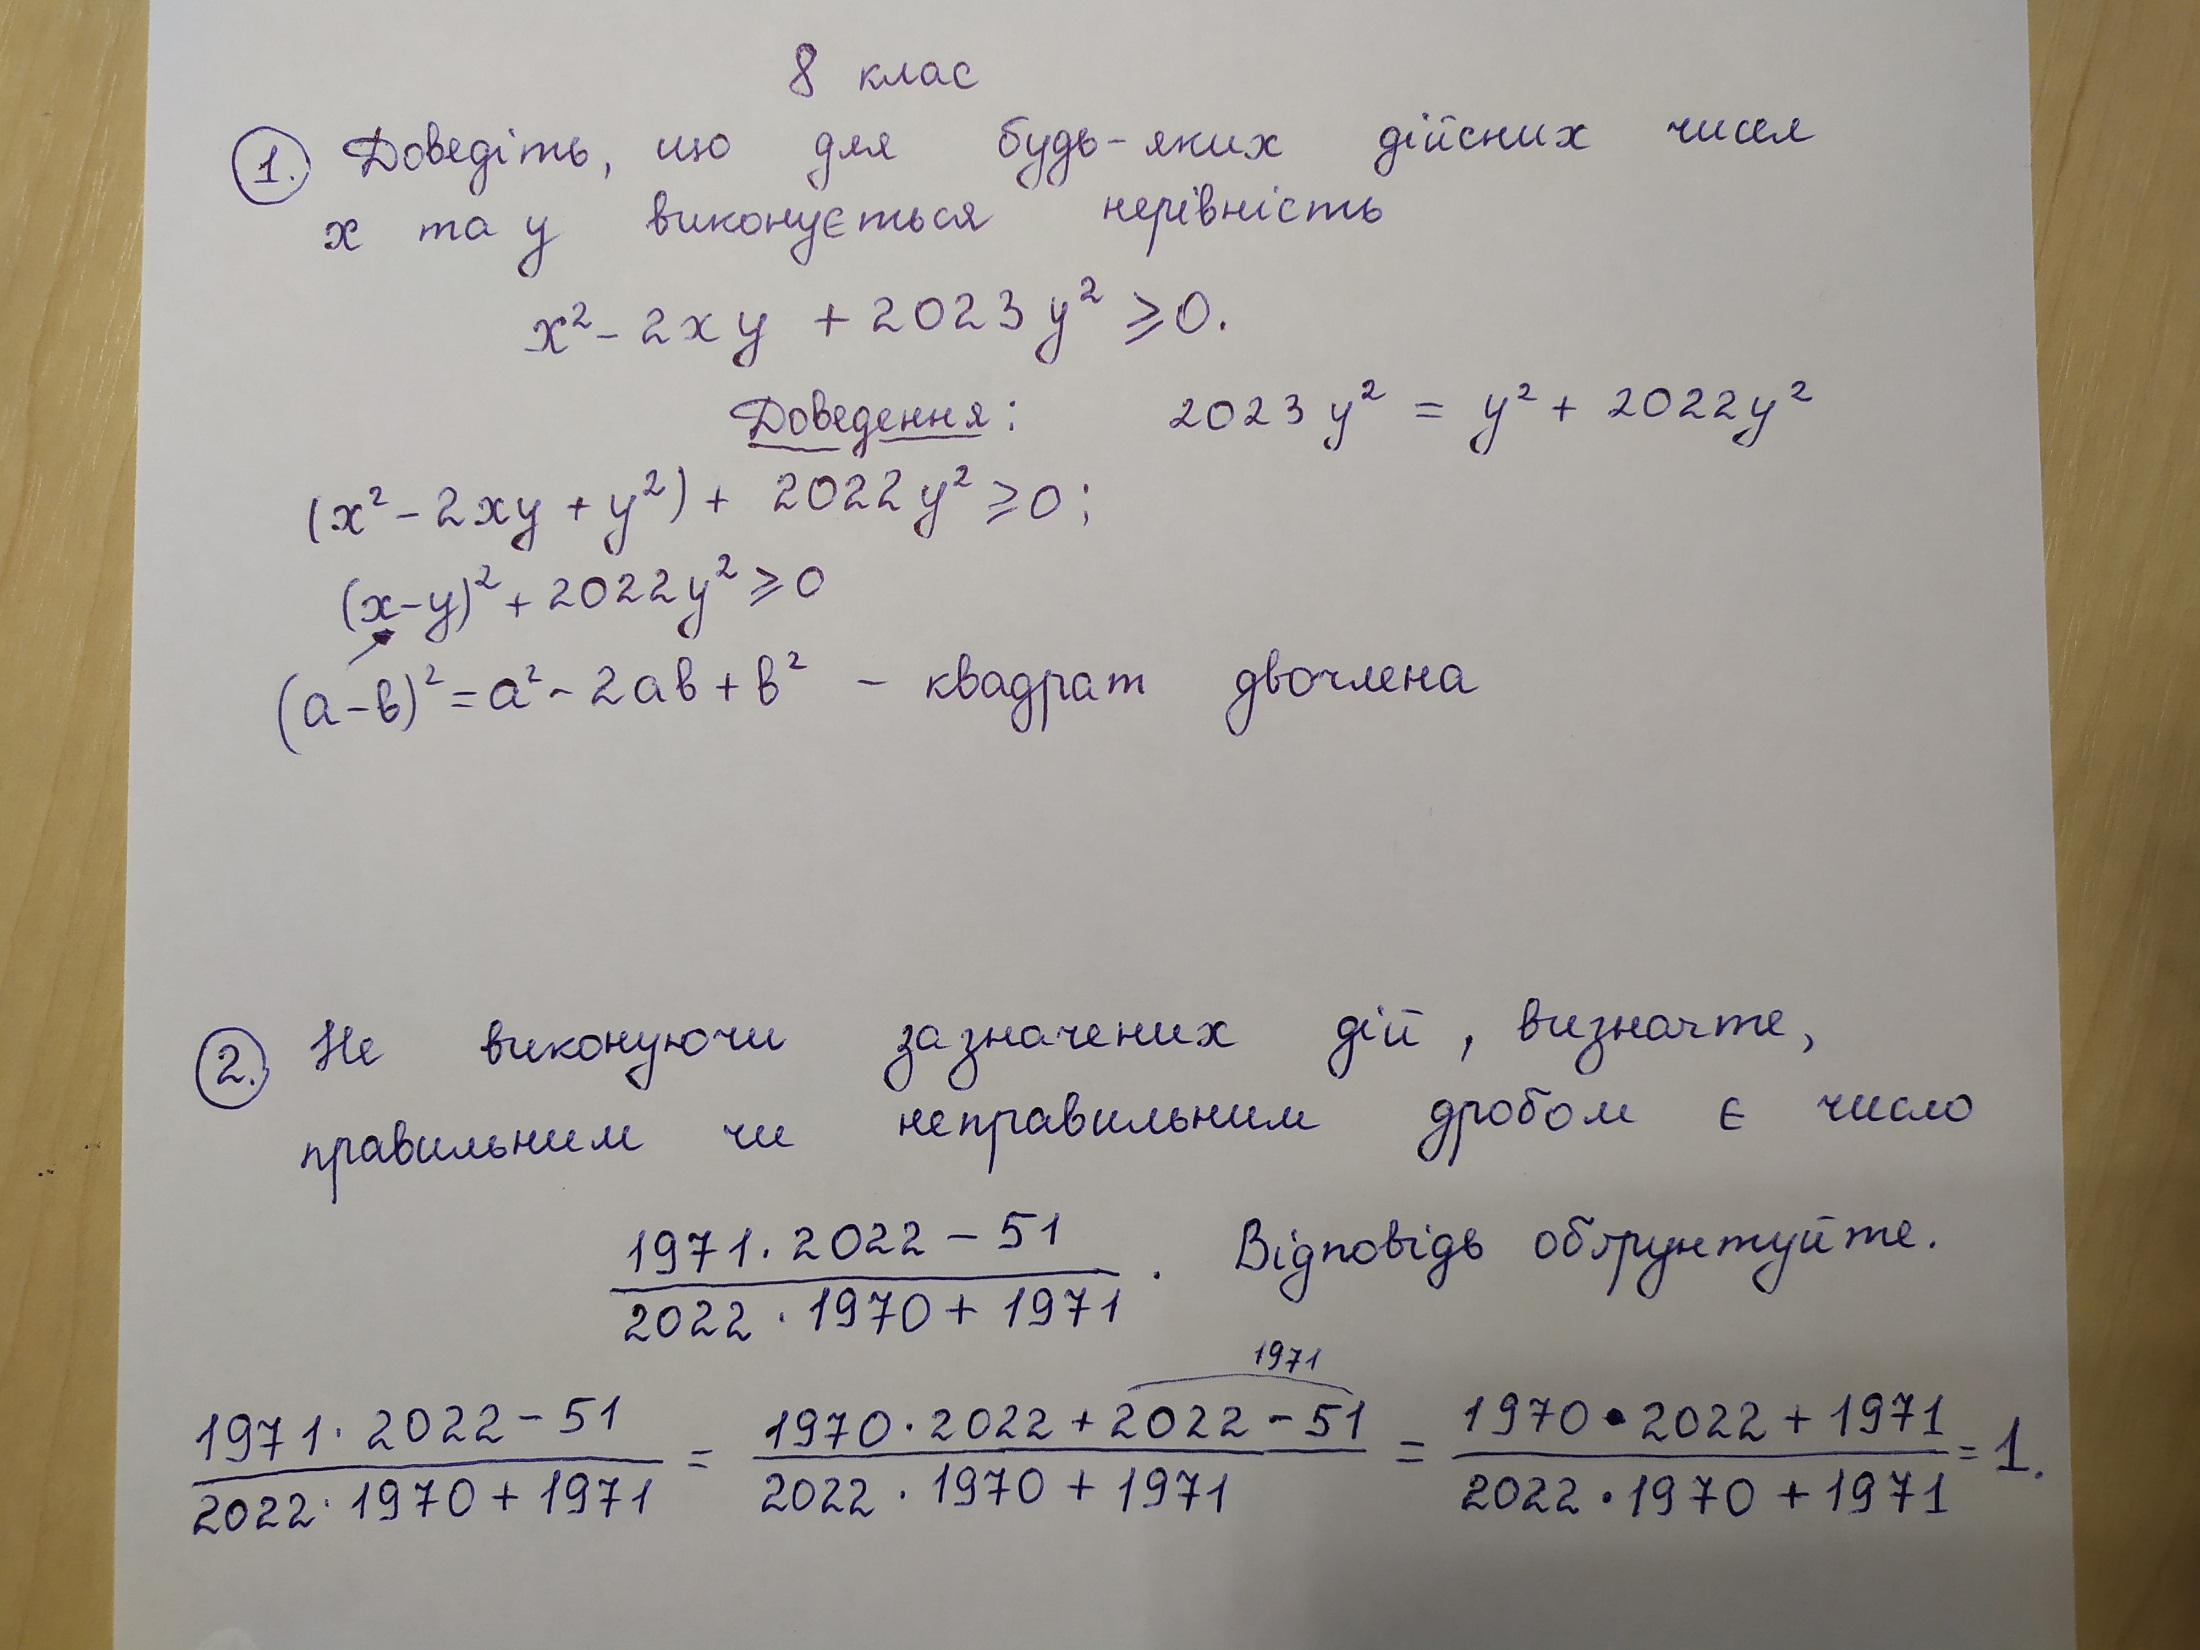 8 клас
1. Доведіть, що для будь-яких дійсних чисел
x та y виконується нерівність
x² - 2xy + 2023y² ⩾ 0.
Доведення: 2023y² = y² + 2022y²
(x² - 2xy + y²) + 2022y² ⩾ 0;
(x-y)² + 2022y² ⩾ 0
(a-b)² = a² - 2ab + b² - квадрат двочлена
2. Не виконуючи зазначених дій, визначте,
правильним чи неправильним дробом є число
(1971 · 2022 - 51) / (2022 · 1970 + 1971). Відповідь обґрунтуйте.
1971
(1971 · 2022 - 51) / (2022 · 1970 + 1971) = (1970 · 2022 + 2022 - 51) / (2022 · 1970 + 1971) = (1970 · 2022 + 1971) / (2022 · 1970 + 1971) = 1.